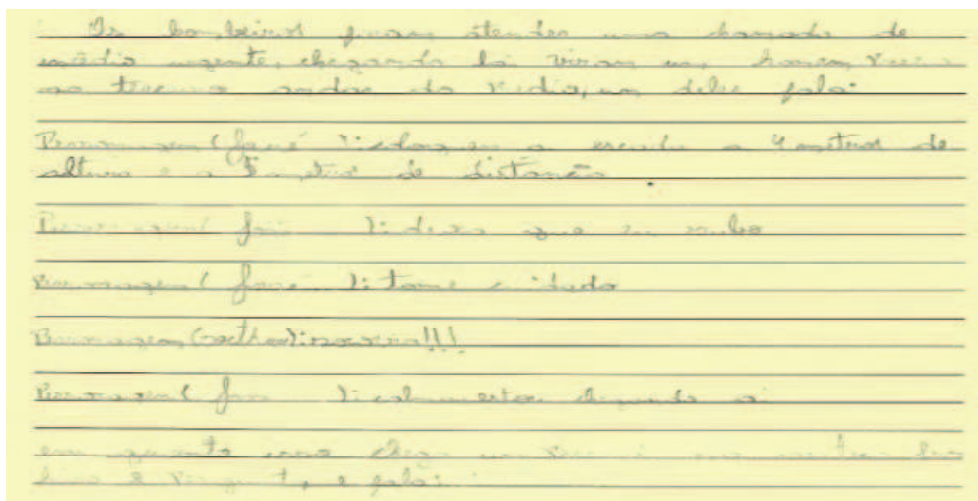 Os bombeiros foram atender uma chamada de
urgente, chegando lá viram um homem
ao terceiro andar do predio, um deles fala:
Personagem (josé ): coloquem a escada a 4 metros de
altura e a 5 metros de distância.
Personagem( josé ): deixa que eu subo
Personagem( josé ): tome cuidado
Personagem( ): socorro!!!
Personagem( josé ): calma estou chegando ai
em quanto isso chega um
e fala: